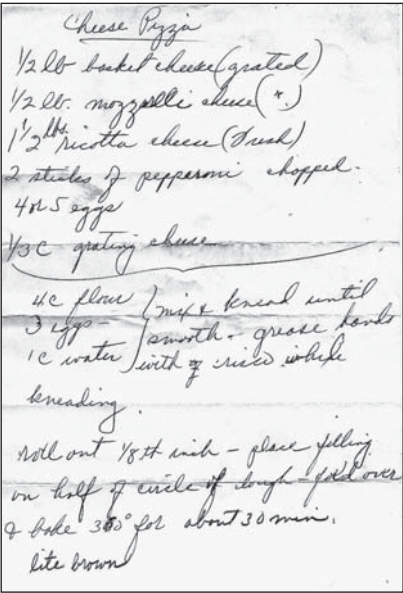 Cheese Pizza
1/2 lb basket cheese (grated)
1/2 lb. mozzarelli cheese (".)
1 1/2 lbs ricotta cheese (Fresh)
2 sticks of pepparoni chopped.
4 or 5 eggs
1/3 C grating cheese
4c flour } mix & knead until
3 eggs - } smooth - grease hands
1c water } with crisco while
kneading.
roll out 1/8th inch - place filling
on half of circle of dough - fold over
& bake 350° for about 30 min.
lite brown